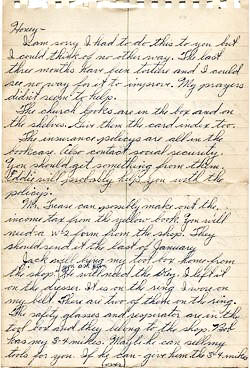 Honey-
I am sorry I had to do this to you but
I could think of no other way. The last
three months have been torture and I could
see no way for it to improve. My prayers
didn't seem to help.
The church books are in the box and on
the shelves. Give them the card index too.
The insurance policys are all in the
Also contact social security.
You should get something from them.
Eddie will probably help you with the
policys.
Mr. Grase can possibly make out the
income tax from the yellow book. You will
need a W-2 form from the shop. They
should send it the last of January.
Jack will bring my tool box home from
the shop. He will need the key. I left it
on the dresser. It is on the ring I wore on
my belt. There are two of them on the ring.
The safety glasses and respirator are in the
tool box and they belong to the shop.
has my 3-4 mikes. Maybe he can sell my
tools for you. If he can - give him the 3-4 mikes
(over)